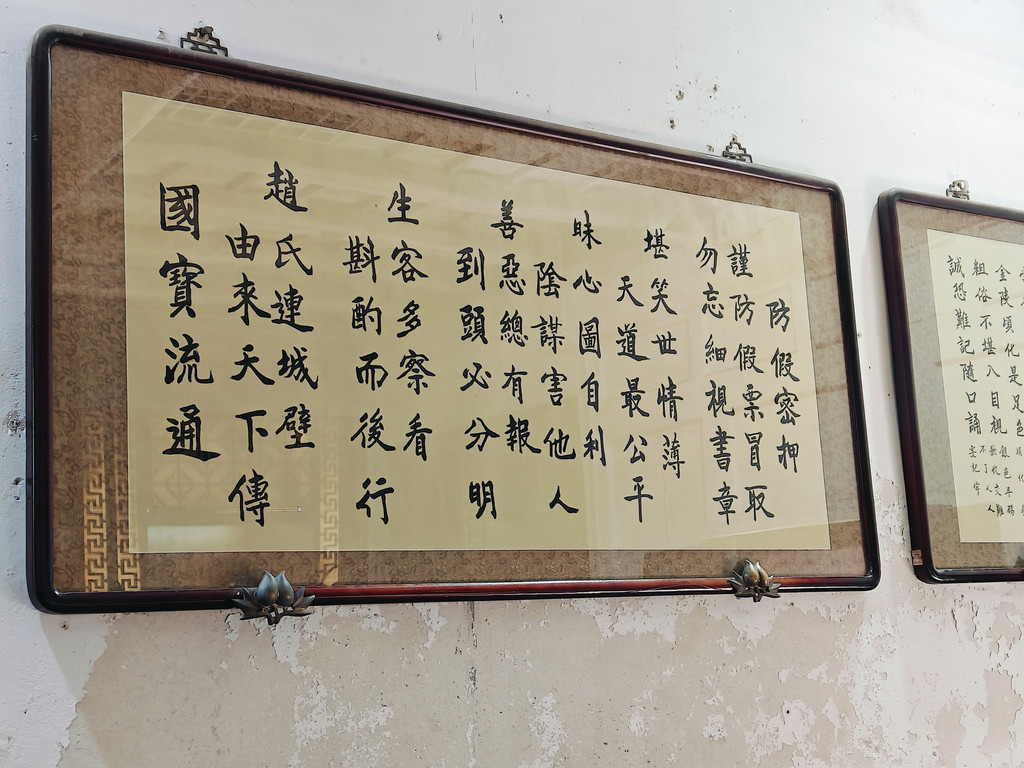 防假密押
謹防假票冒取
勿忘細視書章
堪笑世情薄
天道最公平
昧心圖自利
陰謀害他人
善惡總有報
到頭必分明
生客多察看
斟酌而後行
趙氏連城壁
由來天下傳
國寶流通
金陵頃化是足色
粗俗不堪入目視
誠恐難記隨口誦